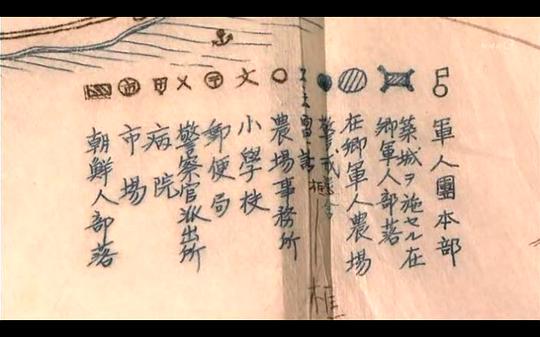 軍人團本部
築城ヲ施セル在
郷軍人部落
在郷軍人農場
警戒
電話
農場事務所
小學校
郵便局
警察官派出所
病院
市場
朝鮮人部落